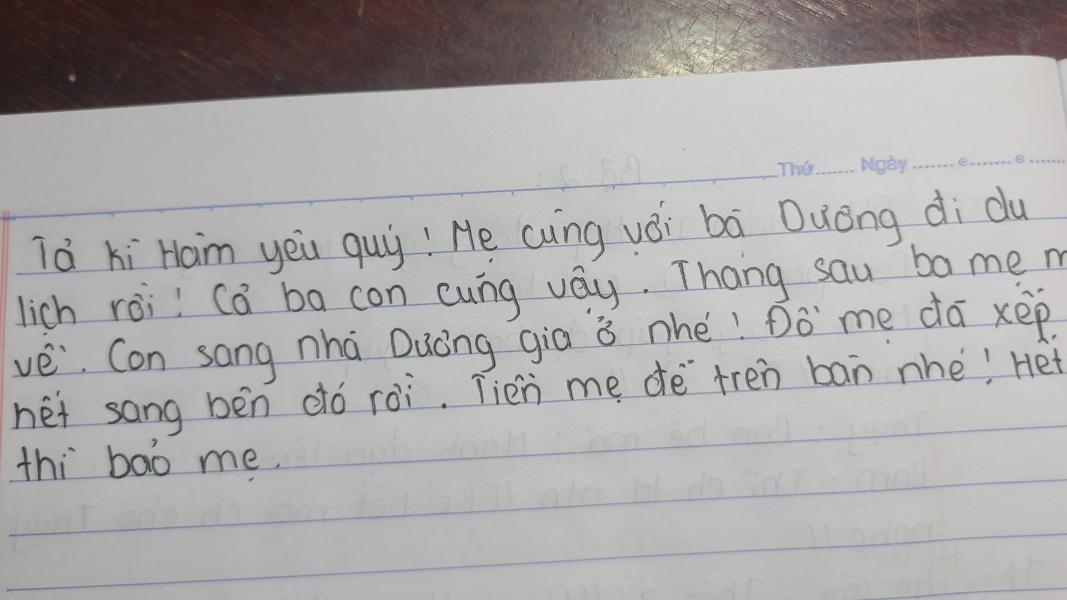 Thứ....... Ngày ....... e....... e ......
Tả kỉ Hàm yêu quý! Mẹ cùng với bà Dương đi du
lịch rồi! Cả ba con cũng vậy. Tháng sau ba mẹ m
về. Con sang nhà Dương gia ở nhé! Đồ mẹ đã xếp
hết sang bên đó rồi. Tiền mẹ để trên bàn nhé! Hết
thì bảo mẹ.